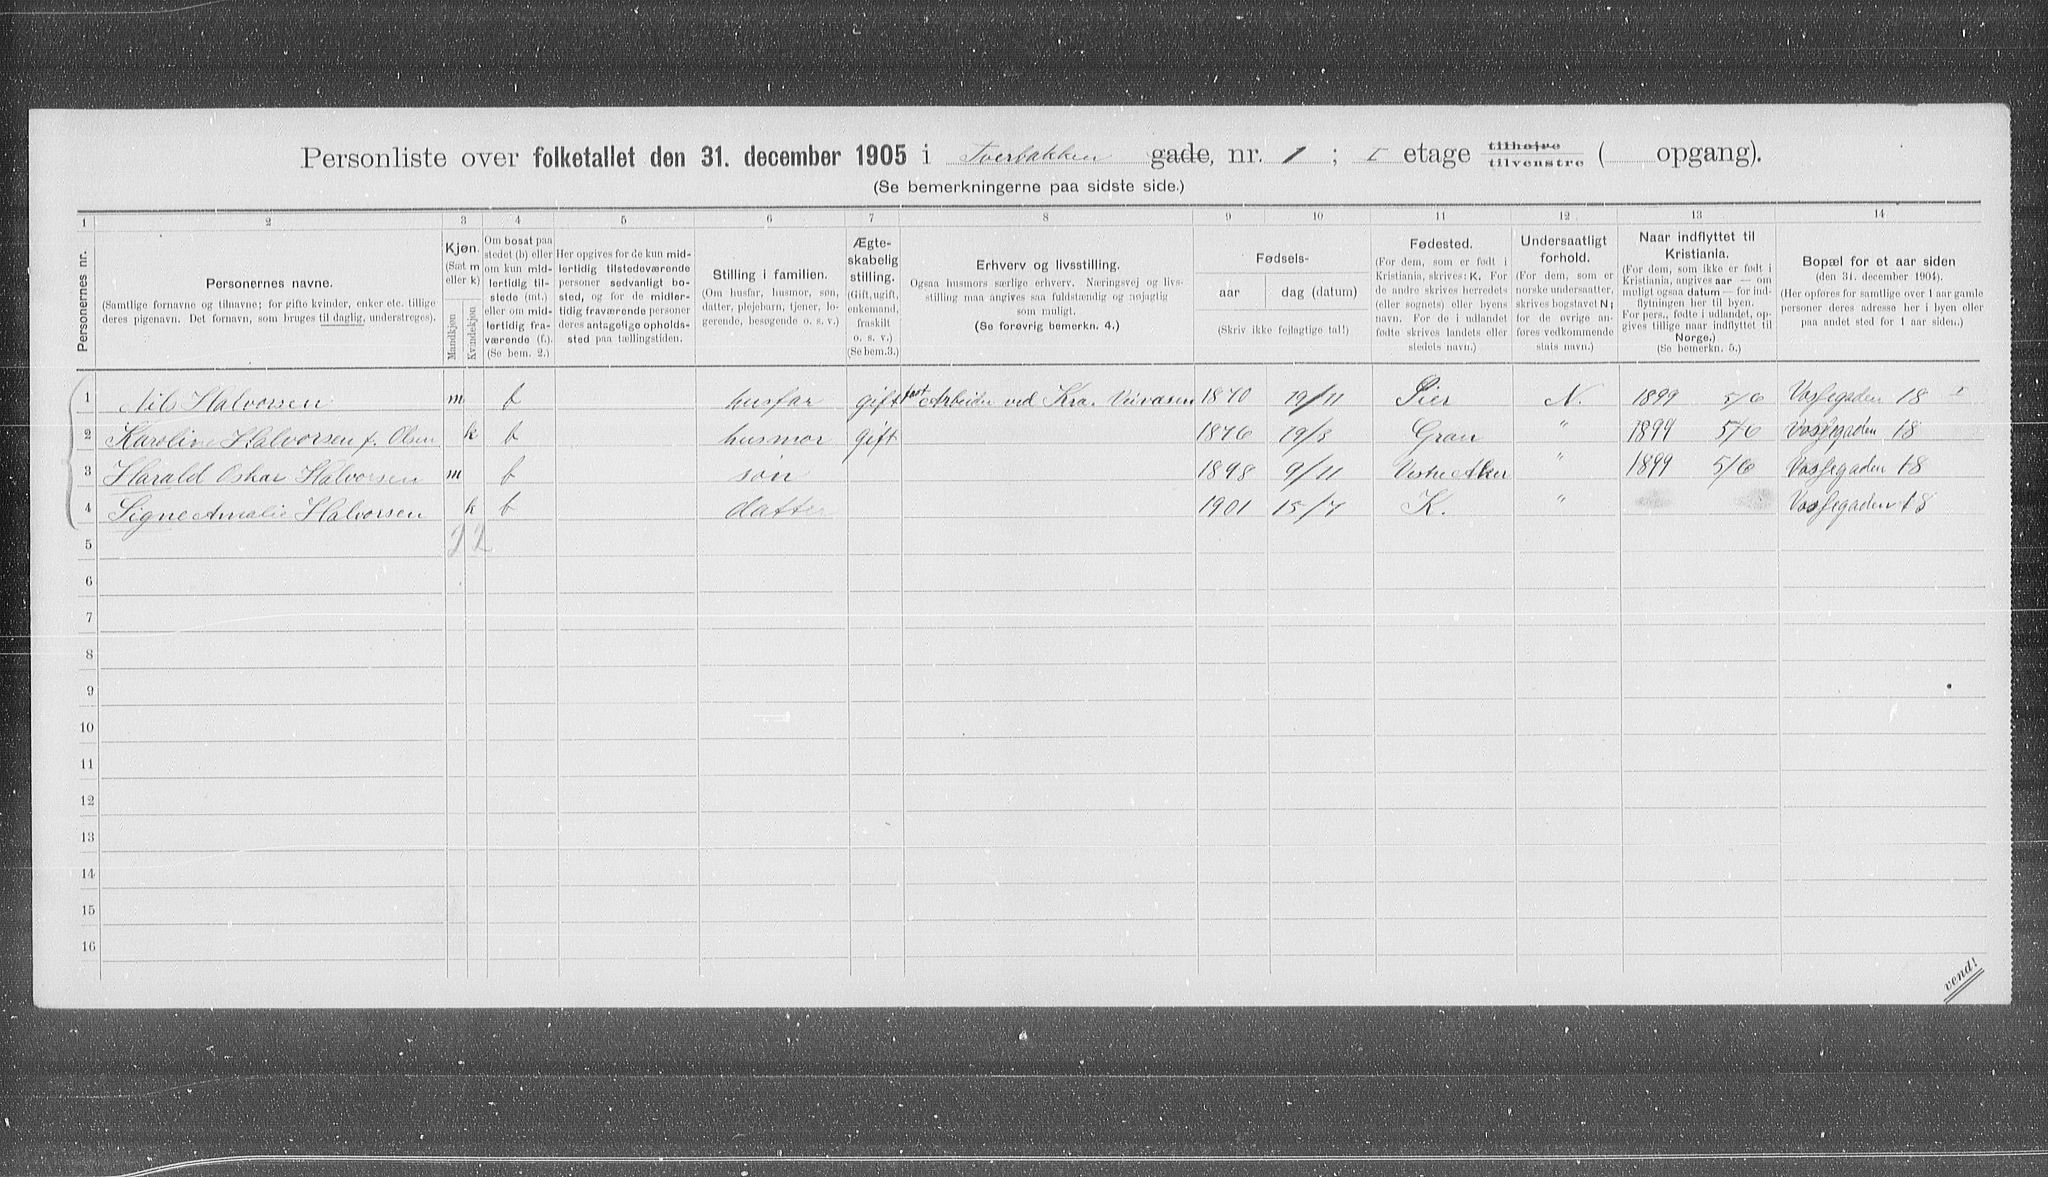 Personliste over folketallet den 31. december 1905 i Tverbakken gade, nr. 1 ; I etage tilhøjre tilvenstre ( opgang).
(Se bemerkningerne paa sidste side.)
1 2 3 4 5 6 7 8 9 10 11 12 13 14
Personernes nr.
Personernes navne.
(Samtlige fornavne og tilnavne; for gifte kvinder, enker etc. tillige
deres pigenavn. Det fornavn, som bruges til daglig, understreges).
Kjøn.
(Sæt m
eller k)
Mandkjøn
Kvindekjøn
Om bosat paa
stedet (b) eller
om kun mid-
lertidig til-
stede (mt.)
eller om mid-
lertidig fra-
værende (f.).
(Se bem. 2.)
Her opgives for de kun mid-
lertidig tilstedeværende
personer sedvanligt bo-
sted, og for de midler-
tidig fraværende personer
deres antagelige opholds-
sted paa tællingstiden.
Stilling i familien.
(Om husfar, husmor, søn,
datter, plejebarn, tjener, lo-
gerende, besøgende o. s. v.)
Ægte-
skabelig
stilling.
(Gift, ugift,
enkemand,
fraskilt
o. s. v.)
(Se bem.3.)
Erhverv og livsstilling.
Ogsaa husmors særlige erhverv. Næringsvej og livs-
stilling maa angives saa fuldstændig og nøjagtig
som muligt.
(Se forøvrig bemerkn. 4.)
Fødsels-
aar
dag (datum)
(Skriv ikke fejlagtige tal!)
Fødested.
(For dem, som er født i
Kristiania, skrives: K. For
de andre skrives herredets
(eller sognets) eller byens
navn. For de i udlandet
fødte skrives landets eller
stedets navn.)
Undersaatligt
forhold.
(For dem, som er
norske undersaatter,
skrives bogstavet N;
for de øvrige an-
føres vedkommende
stats navn.)
Naar indflyttet til
Kristiania.
(For dem, som ikke er født i
Kristiania, angives aar — om
muligt ogsaa datum — for ind-
flytningen her til byen.
For pers., fødte i udlandet, op-
gives tillige naar indflyttet til
Norge.)
(Se bemerkn. 5.)
Bopæl for et aar siden
(den 31. december 1904).
(Her opføres for samtlige over 1 aar gamle
personer deres adresse her i byen eller
paa andet sted for 1 aar siden.)
1 Nils Halvorsen m b husfar gift fast Arbeider ved Kra. Veivæsen 1870 19/11 Lier N. 1899 5/6 Vossegaden 18 I
2 Karoline Halvorsen f. Olsen k b husmor gift 1876 19/3 Gran " 1899 5/6 Vossegaden 18
3 Harald Oskar Halvorsen m b søn 1898 9/11 Vestre Aker " 1899 5/6 Vossegaden 18
4 Signe Amalie Halvorsen k b datter 1901 15/7 K. " Vossegaden 18
5 2 2
6
7
8
9
10
11
12
13
14
15
16
vend!